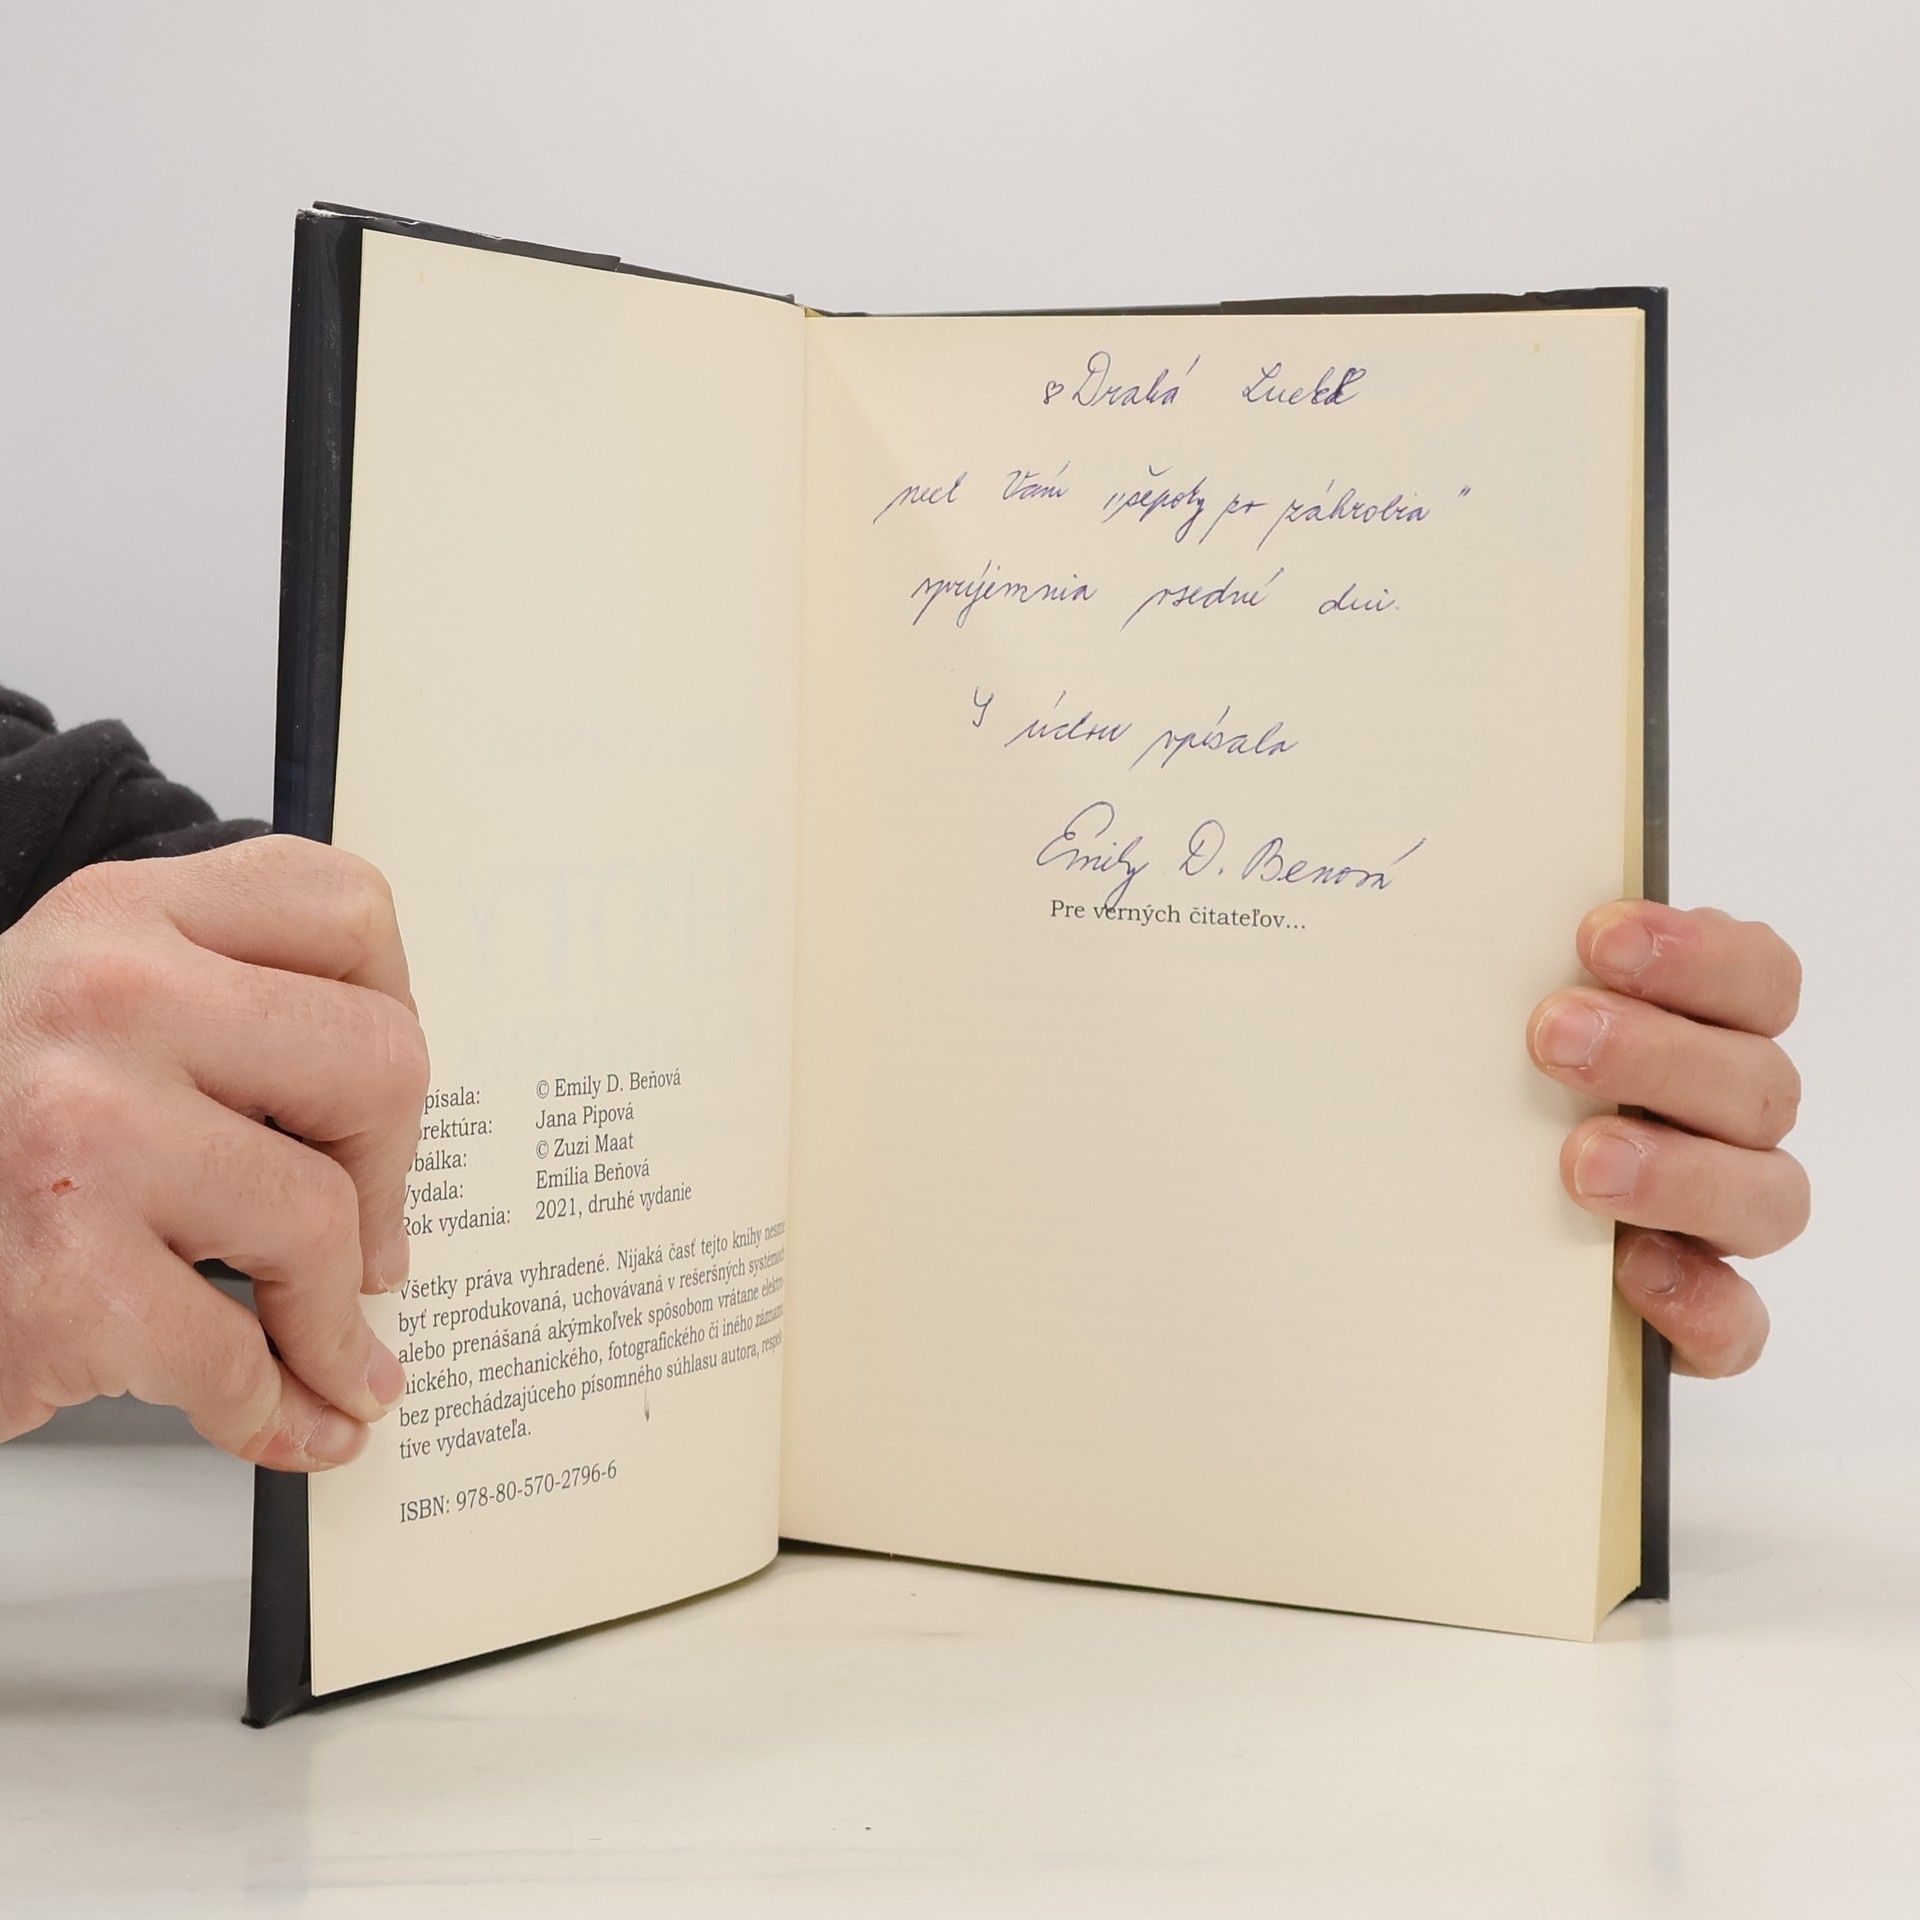 písala: © Emily D. Beňová
rektúra: Jana Pipová
bálka: © Zuzi Maat
Vydala: Emília Beňová
Rok vydania: 2021, druhé vydanie
Všetky práva vyhradené. Nijaká časť tejto knihy nesmie
byť reprodukovaná, uchovávaná v rešeršných systémoch
alebo prenášaná akýmkoľvek spôsobom vrátane elektro-
nického, mechanického, fotografického či iného záznamu
bez prechádzajúceho písomného súhlasu autora, respek
tíve vydavateľa.
ISBN: 978-80-570-2796-6
Drahá Lucka
nech Vám "šepoty zo záhrobia"
spríjemnia všedné dni.
S úctou spísala
Emily D. Benová
Pre verných čitateľov...